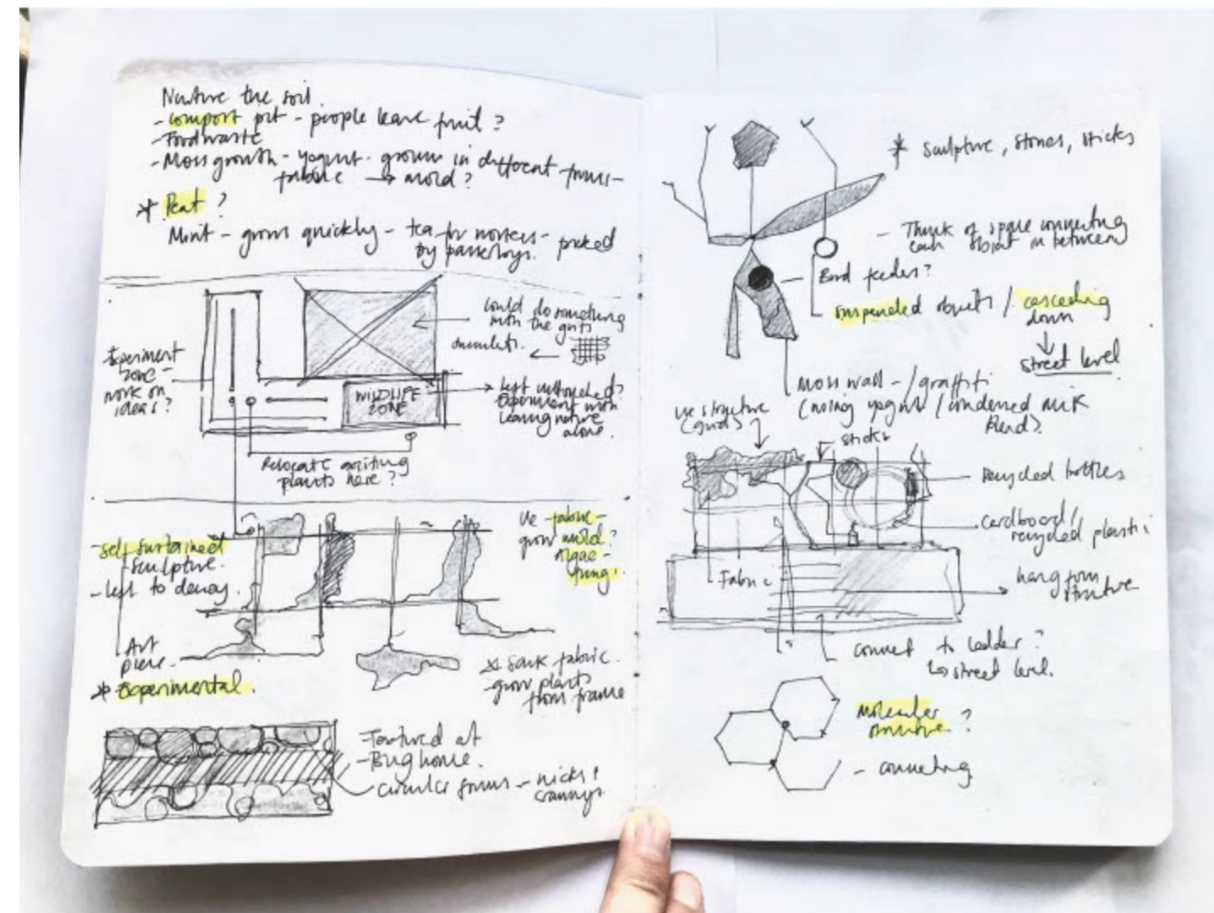 Nurture the soil.
- compost pit - people leave fruit?
- Food waste
- Moss growth - yogurt - grown in different forms -
fabric → mold?
* Peat?
Mint - grows quickly - tea for workers - picked
by passerbys.
Experiment
zone -
work on
ideas?
could do something
with the grids
WILDLIFE
ZONE
Left untouched?
Experiment with
leaving nature
alone.
Relocate existing
plants here?
- Self sustained
sculpture.
- left to decay.
Use fabric -
grow mold?
algae -
fungi.
Art
piece -
* Experimental.
* Soak fabric.
- grow plants
from frame
- Textured art
- Bug house.
- circular forms - nicks &
crannys.
* Sculpture, stones, sticks
- Think of space connecting
each object in between
Bird feeders?
suspended objects / cascading
down
↓
Street level
Moss wall - / graffiti
(using yogurt / condensed milk
blend?
Use structure
(grids)
sticks
Recycled bottles
cardboard /
recycled plastic
Fabric
hang from
structure
connect to ladder?
↳ street level.
Molecular
structure?
- connecting